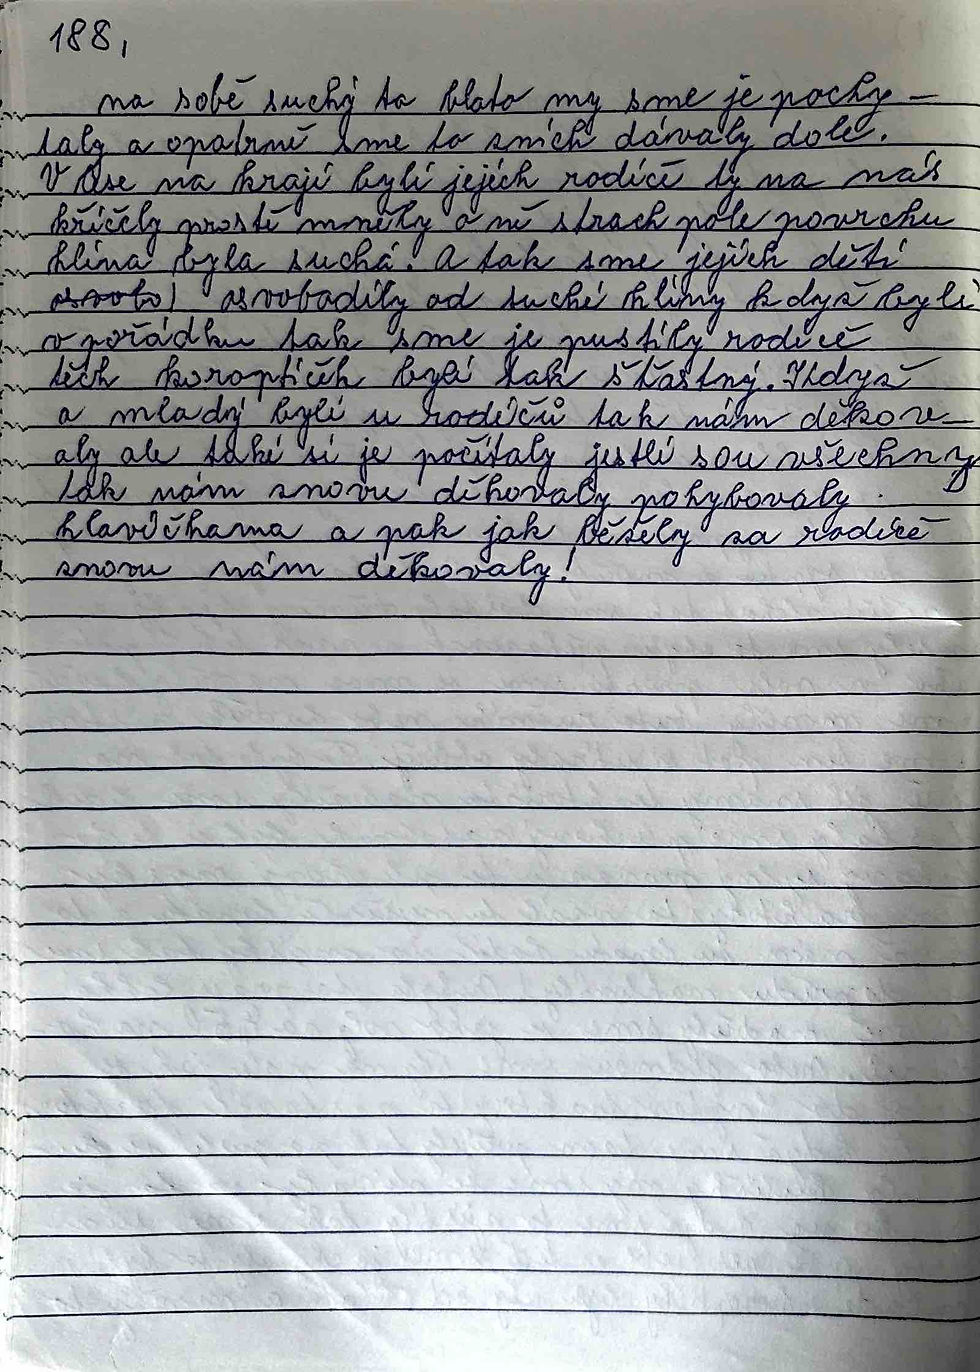 188,
na sobě suchý to blato my sme je pochy-
taly a opatrně sme to snich dávaly dole.
V lese na kraji byli jejich rodiče ty na nás
křičely prostě mněly o ně strach pole povrchu
hlína byla suchá. A tak sme jejich děti
osvobodily od suché hlíny když byli
v pořádku tak sme je pustily rodiče
těch koroptiček byli tak šťastný. Když
a mladý byli u rodičů tak nám děkov-
aly ale také si je počítaly jestli sou všechny
tak nám znovu děkovaly pohybovaly
hlavičkama a pak jak běžely za rodiče
znovu nám děkovaly!